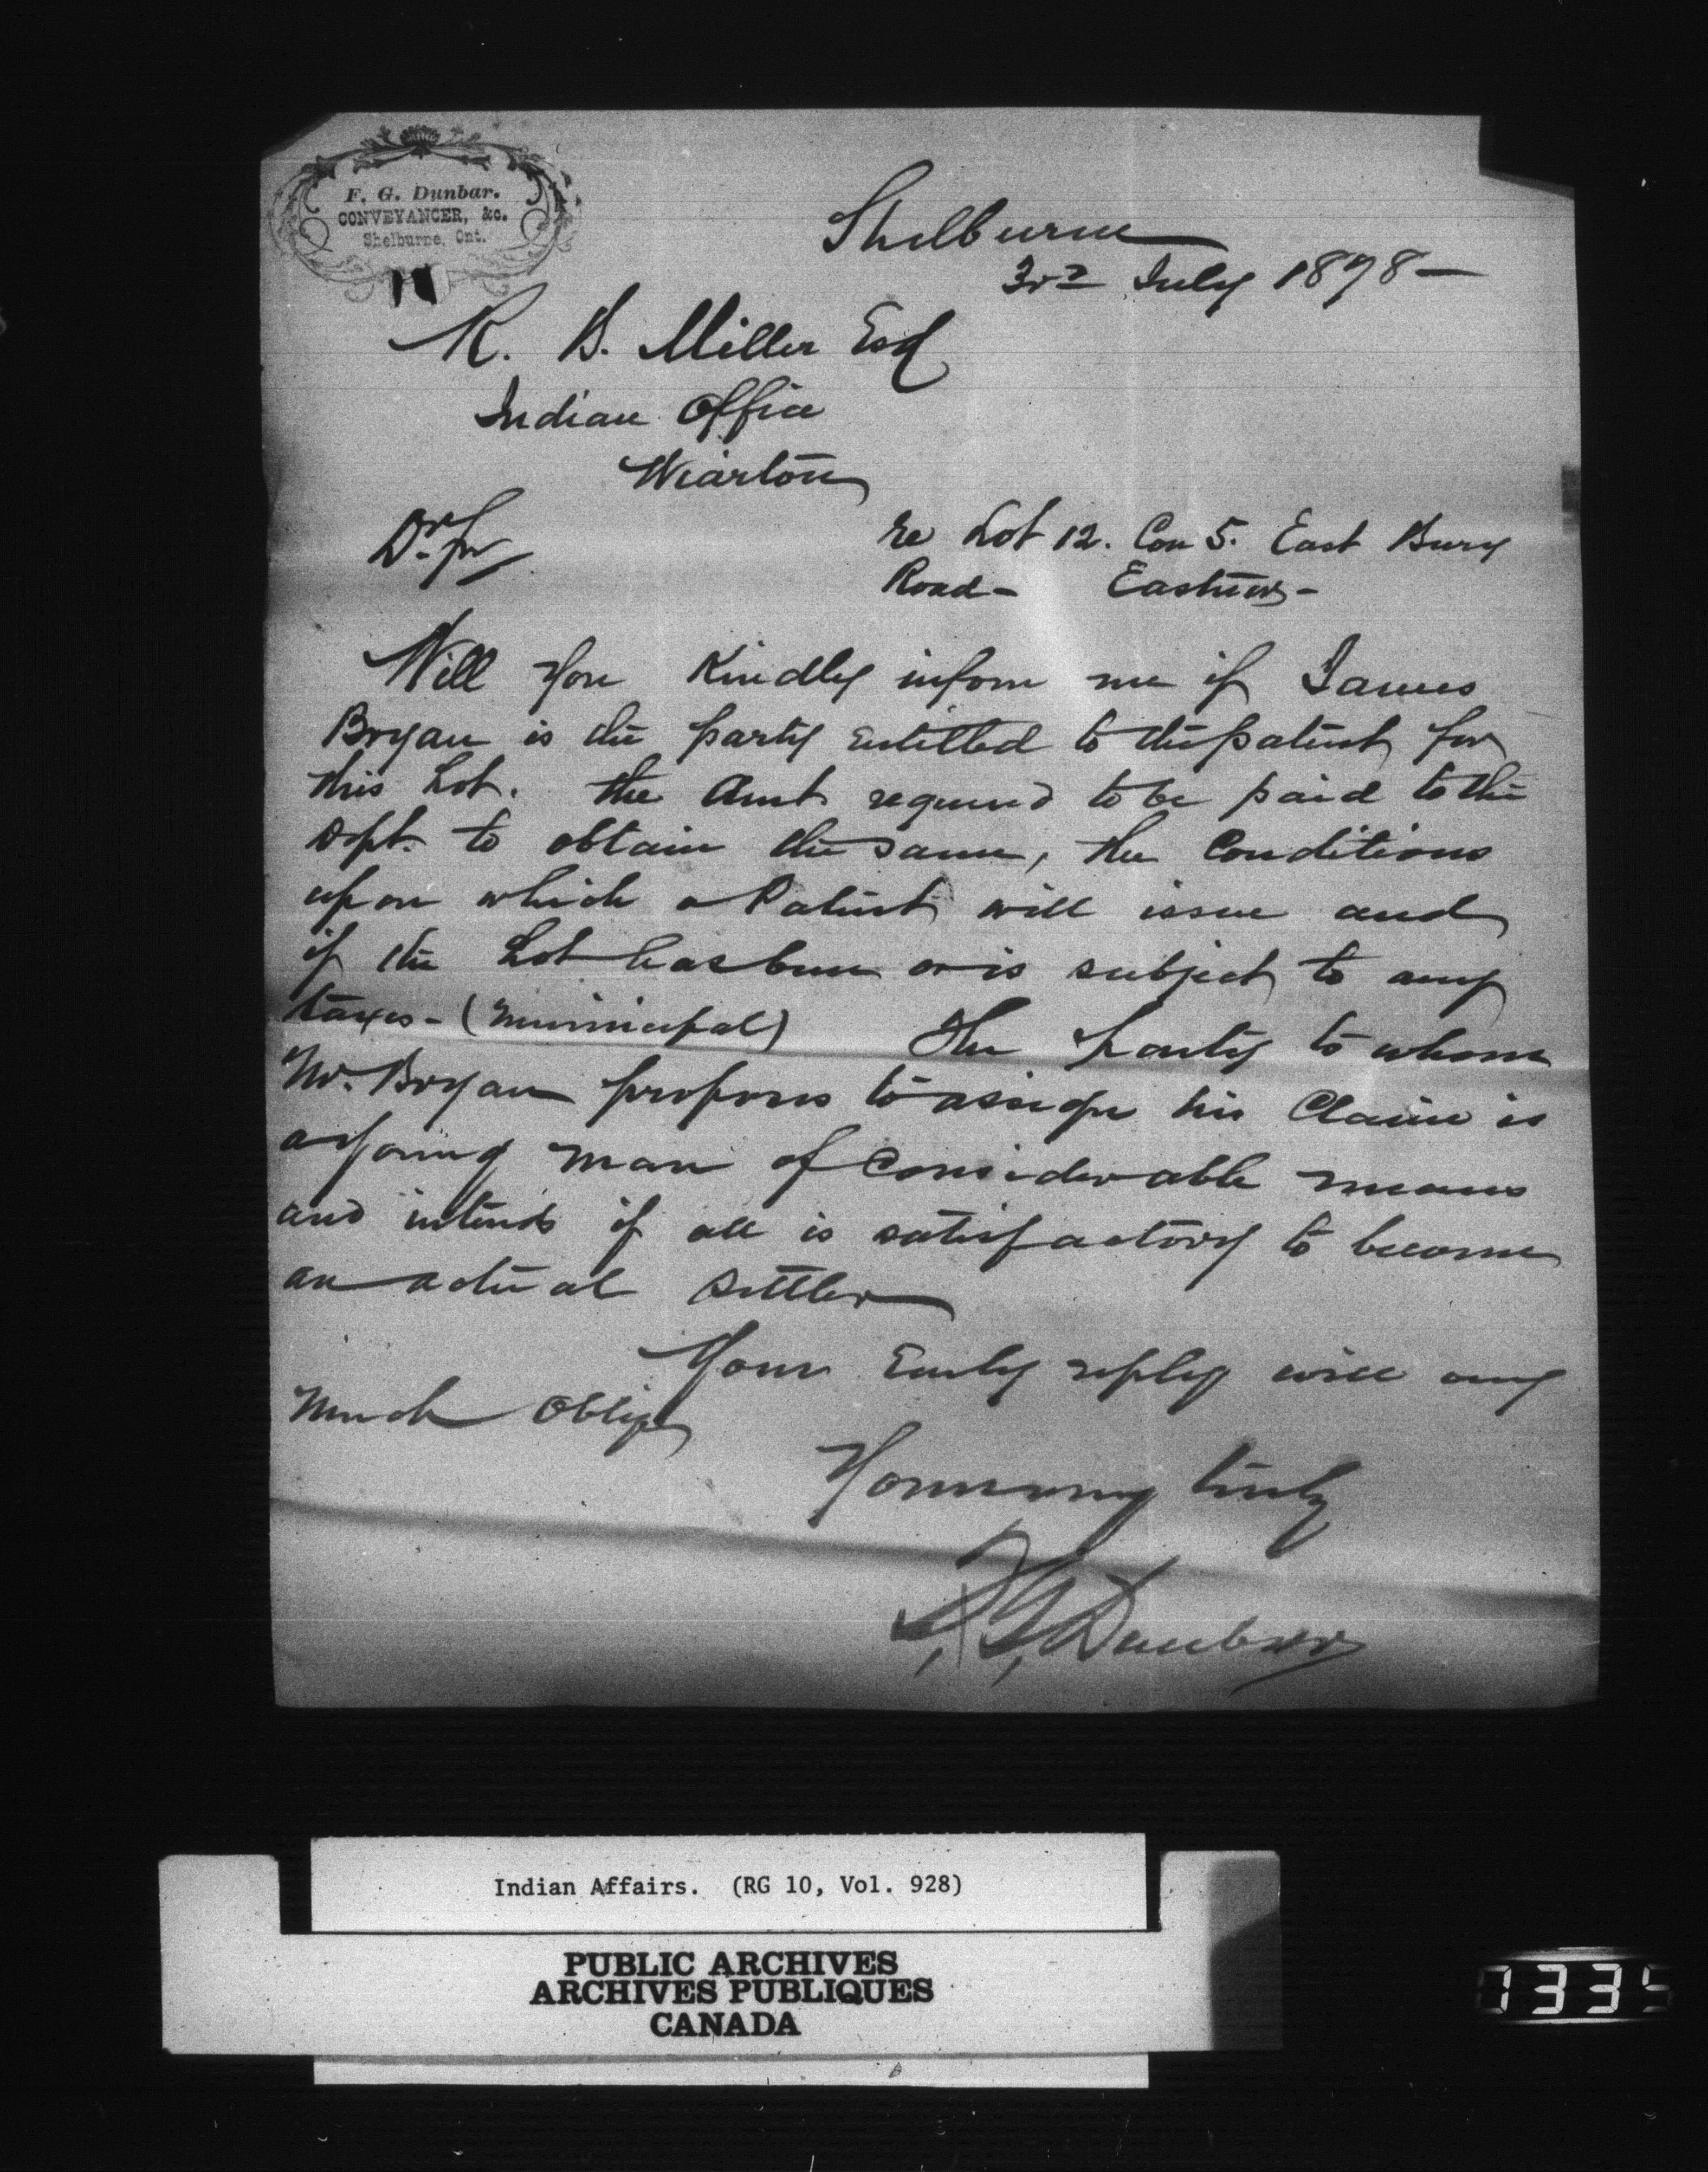 F. G. Dunbar.
CONVEYANCER, &c.
Shelburne, Ont.
Shelburne
3rd July 1898 —
R. B. Miller Esq
Indian Office
Wiarton
Dr Sir
re Lot 12. Con 5. East Bury
Road - Eastnor -
Will you Kindly inform me if James
Bryan is the party entitled to the patent for
this Lot. the Amt required to be paid to the
Dept. to obtain the same, the Conditions
upon which a Patent will issue and
if the Lot has been or is subject to any
taxes - (Municipal) The party to whom
Mr. Bryan proposes to assign his Claim is
a young man of Considerable means
and intends if all is satisfactory to become
an actual settler
Your Early reply will very
much Oblige
Yours very truly
F. G. Dunbar
Indian Affairs. (RG 10, Vol. 928)
PUBLIC ARCHIVES
ARCHIVES PUBLIQUES
CANADA
1335